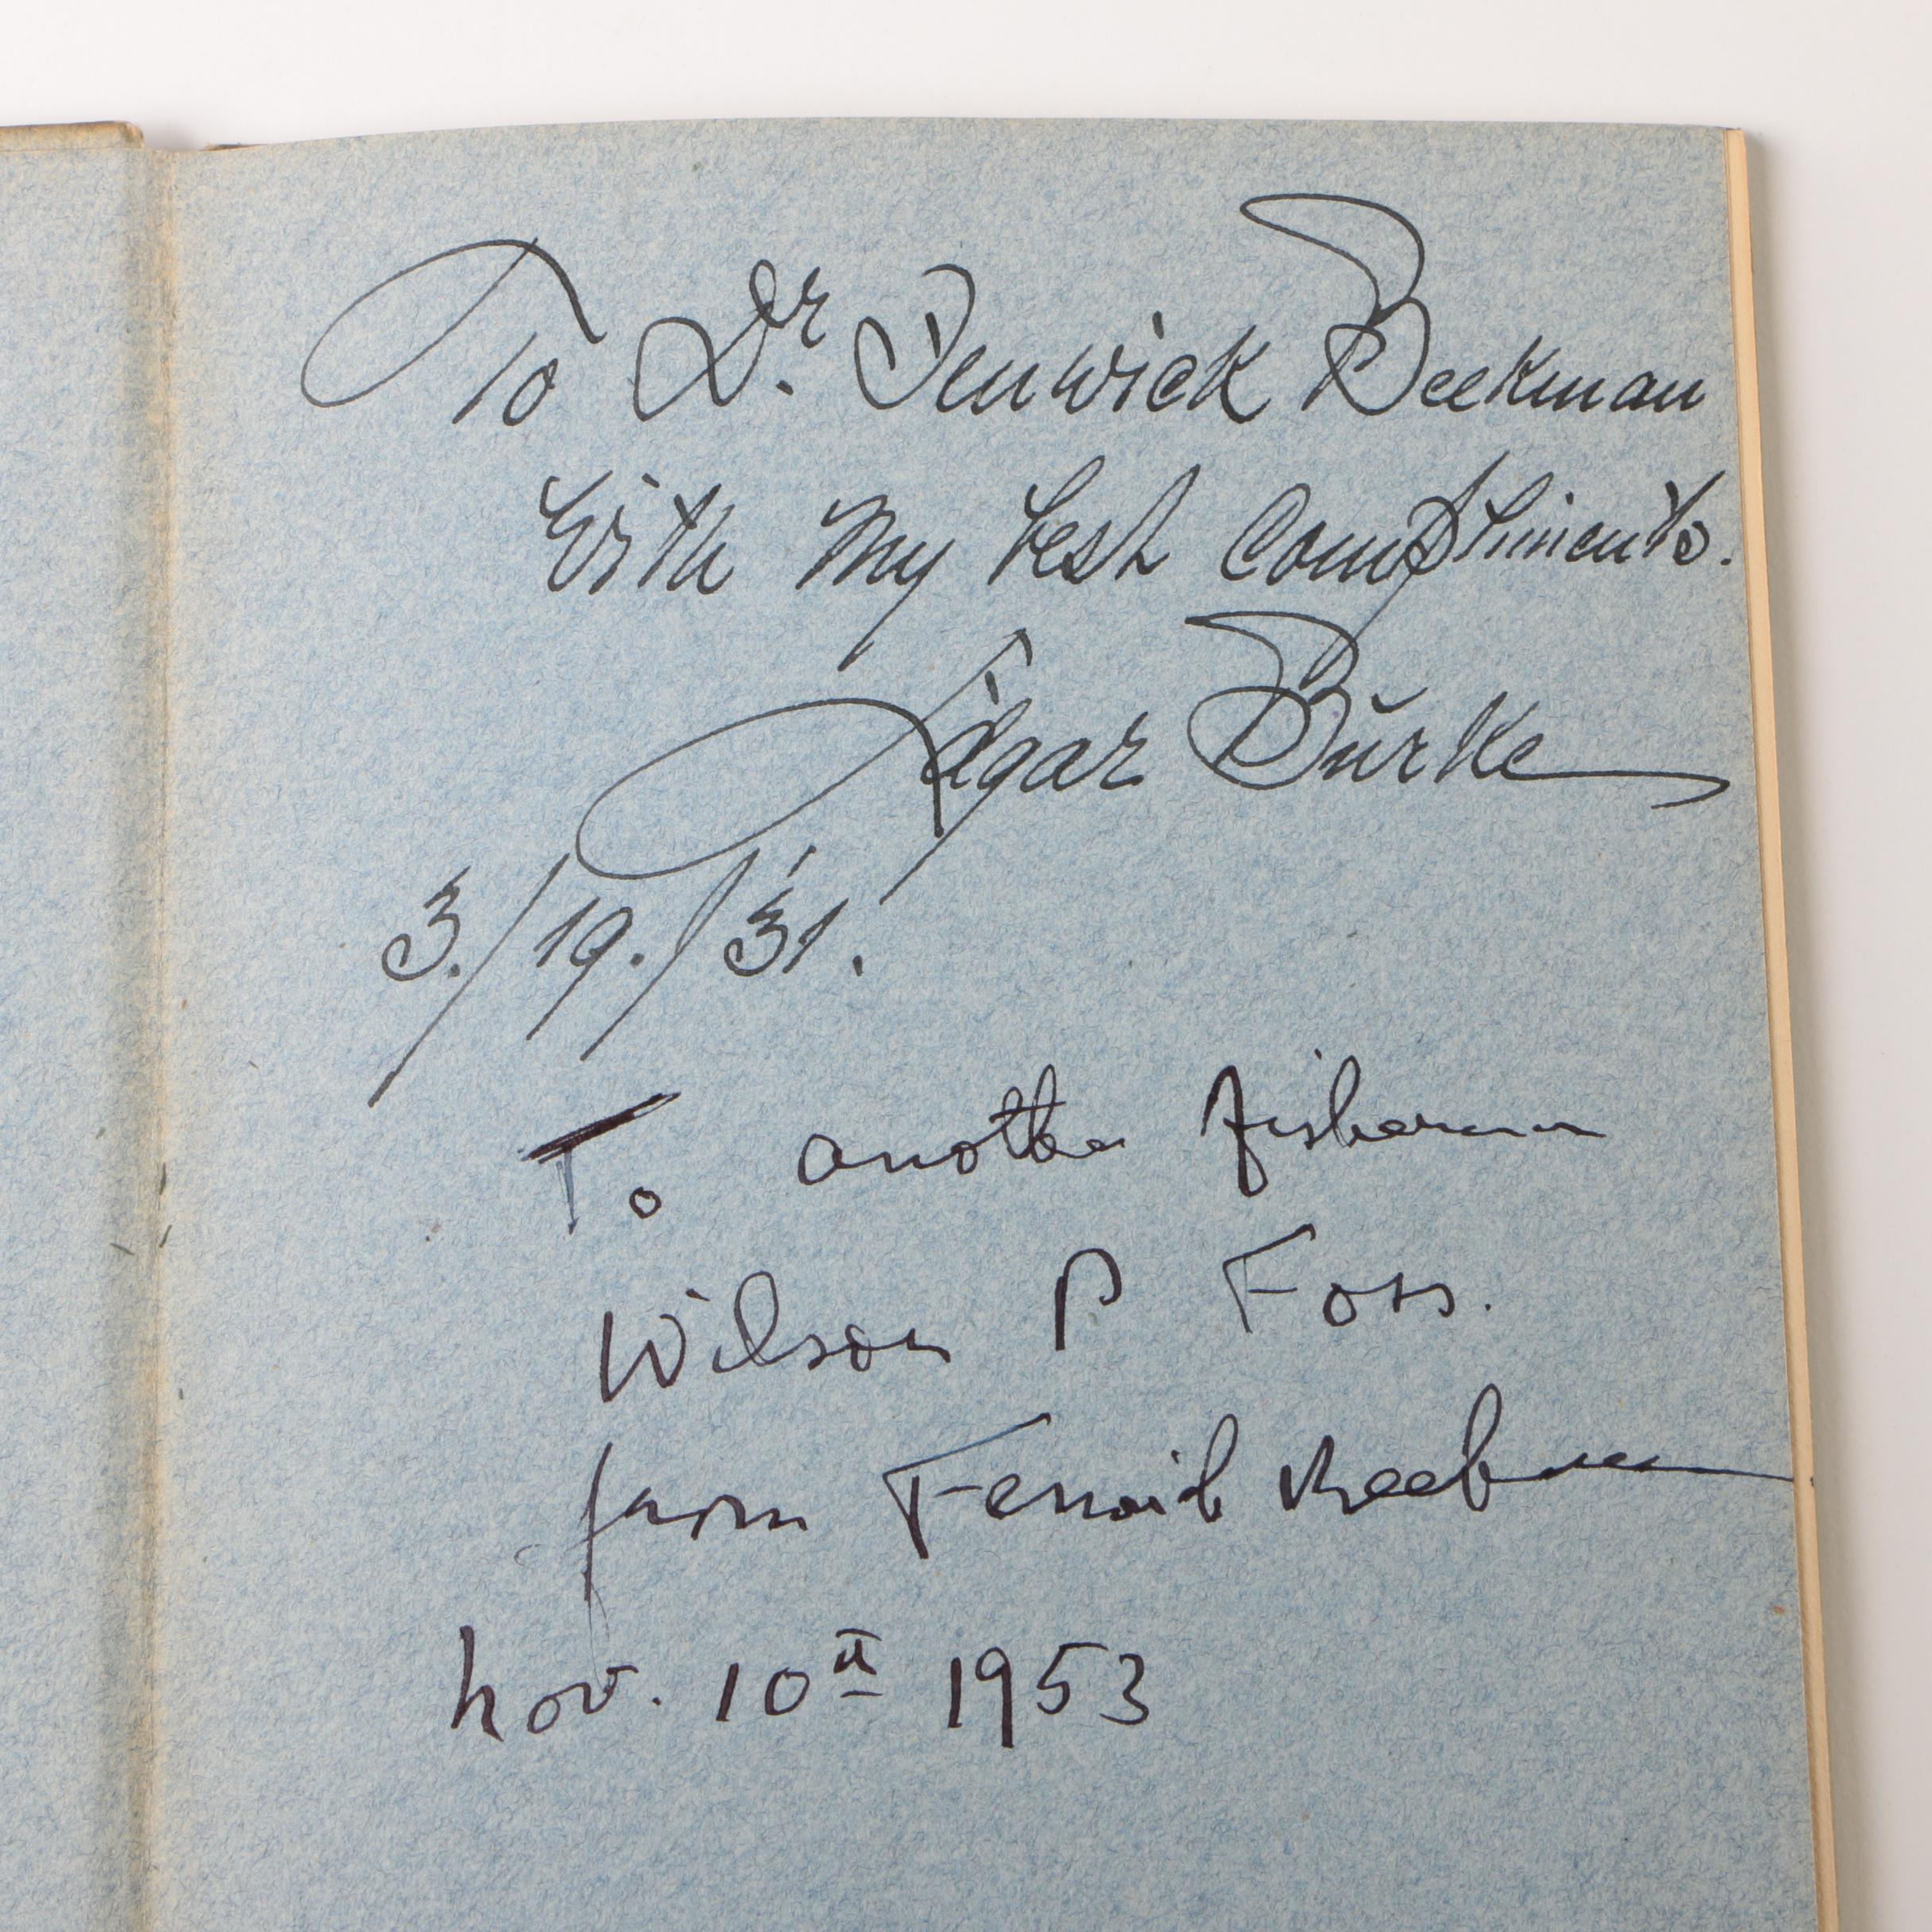 To Dr. Fenwick Beekman
With my best Compliments.
Edgar Burke
3./19./'31.
To another fisherman
Wilson P Foss.
from Fenwick Beekman
Nov. 10th 1953